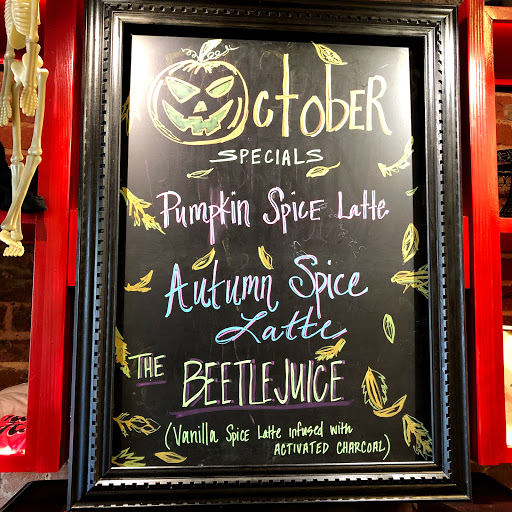 October
SPECIALS
Pumpkin Spice Latte
Autumn Spice
Latte
THE BEETLEJUICE
(Vanilla Spice Latte infused with
ACTIVATED CHARCOAL)